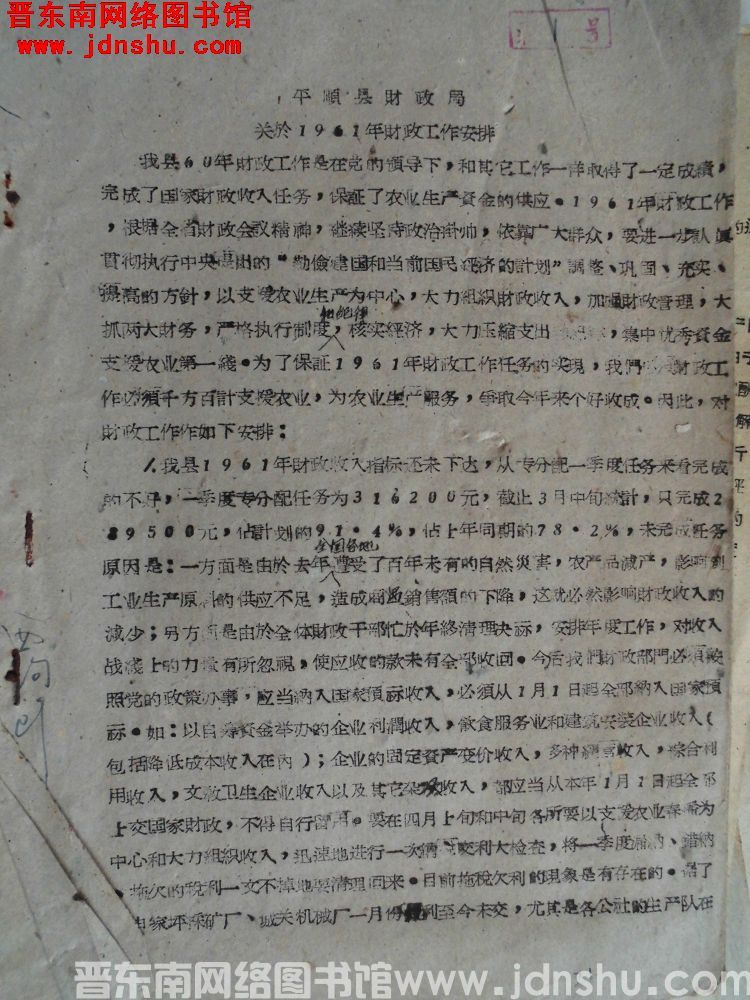 晋东南网络图书馆
www.jdnshu.com
1 号
平順县財政局
关於1961年財政工作安排
我县60年財政工作是在党的領导下，和其它工作一样取得了一定成績，
完成了国家財政收入任务，保証了农业生产資金的供应。1961年財政工作
，根据全省財政会议精神，継续坚持政治掛帅，依靠广大群众，要进一步认真
貫彻执行中央提出的“勤儉建国和当前国民経济的計划”調整、巩固、充实、
提高的方針，以支爰农业生产为中心，大力組織財政收入，加强財政管理，大
和紀律
抓两大財务，严格执行制度，核实経济，大力压縮支出，集中优秀資金
支爰农业第一綫。为了保証1961年財政工作任务的实現，我們財政工
作必須千方百計支援农业，为农业生产服务，争取今年来个好收成。因此，对
財政工作作如下安排：
八我县1961年財政收入指标还未下达，从专分配一季度任务来看完成
的不好，一季度专分配任务为316200元，截止3月中旬統計，只完成2
89500元，佔計划的91·4%，佔上年同期的78·2%，未完成任务
全国各地
原因是：一方面是由於去年遭受了百年未有的自然災害，农产品減产，影响到
工业生产原料的供应不足，造成商品銷售額的下降，这就必然影响財政收入的
減少；另方面是由於全体財政干部忙於年終清理决祘，安排年度工作，对收入
战綫上的力量有所忽視，使应收的款未有全部收回。今后我們財政部門必須按
照党的政策办事，应当納入国家預祘收入，必須从1月1日起全部納入国家預
祘。如：以自筹資金举办的企业利潤收入，飲食服务业和建筑安装企业收入（
包括降低成本收入在內）；企业的固定資产变价收入，多种経营收入，綜合利
用收入，文教卫生企业收入以及其它杂項收入，都应当从本年1月1日起全部
上交国家財政，不得自行留用。要在四月上旬和中旬各所要以支爰农业春耕为
中心和大力組織收入，迅速地进行一次清交利大检查，将一季度漏納、錯納
、拖欠的稅利一文不掉地要清理回来。目前拖税欠利的現象是有存在的。
坪采矿厂、城关机械厂一月份利至今未交，尤其是各公社的生产队在
晋东南网络图书馆www.jdnshu.com